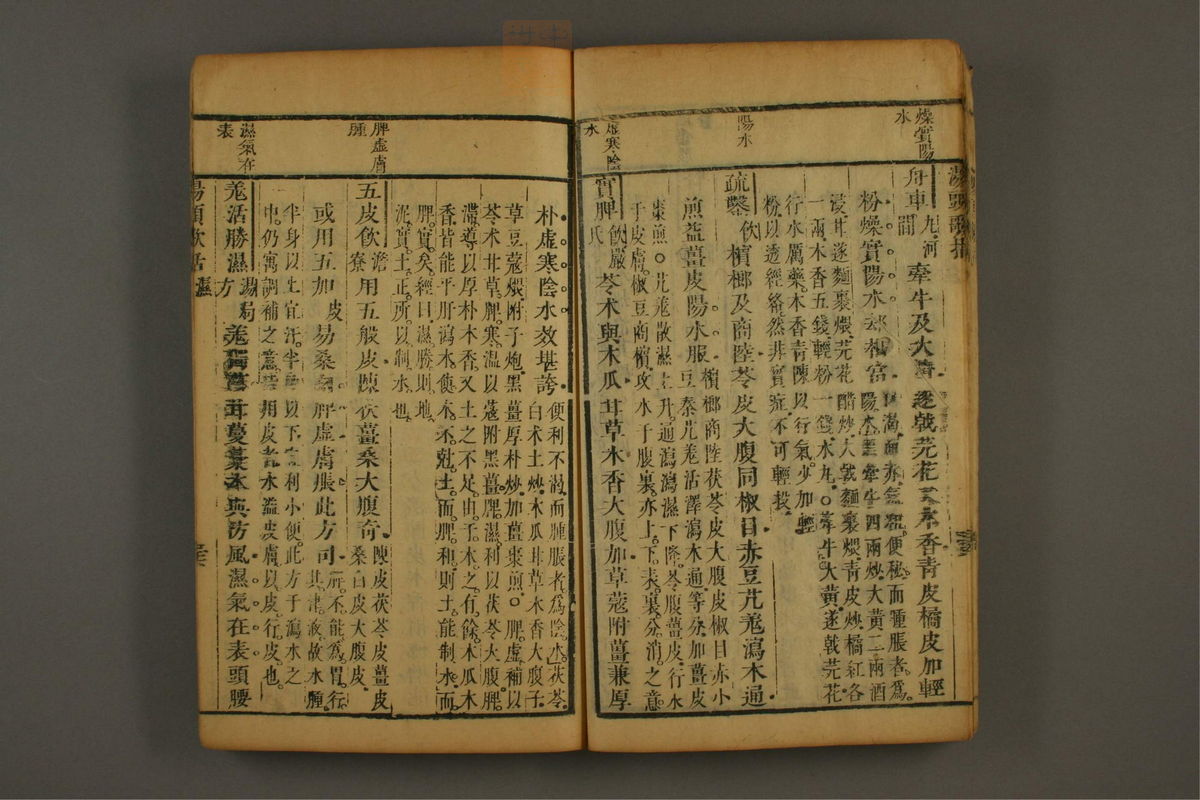 燥實陽水
陽水
虛寒陰水
湯頭歌括
舟車丸河間牽牛及大黃遂戟芫花又木香青皮橘皮加輕
粉燥實陽水却相當口渴面赤氣粗便秘而腫脹者為
陽水黑牽牛四兩炒大黃二兩酒
浸甘遂麵裹煨芫花醋炒大戟麵裹煨青皮炒橘紅各
一兩木香五錢輕粉一錢水丸○牽牛大黃遂戟芫花
行水厲藥木香青陳以行氣少加輕
粉以透經絡然非實症不可輕投
疏鑿飲檳榔及商陸苓皮大腹同椒目赤豆艽羌瀉木通
煎益薑皮陽水服檳榔商陸茯苓皮大腹皮椒目赤小
豆秦艽羌活澤瀉木通等分加薑皮
棗煎○艽羌散濕上升通瀉瀉濕下降苓腹薑皮行水
于皮膚椒豆商檳攻水于腹裏亦上下表裏分消之意
實脾飲嚴氏苓术與木瓜甘草木香大腹加草蔻附薑兼厚
脾虛膚腫
濕氣在表
朴虛寒陰水效堪誇便利不渴而腫脹者為陰水茯苓
白术土炒木瓜甘草木香大腹子
草豆蔻煨附子炮黑薑厚朴炒加薑棗煎○脾虛補以
苓术甘草脾寒溫以蔻附黑薑脾濕利以茯苓大腹脾
滯導以厚朴木香又土之不足由于木之有餘木瓜木
香皆能平肝瀉木使木不尅土而脾和則土能制水而
脾實矣經曰濕勝則地
泥實土正所以制水也
五皮飲澹寮用五般皮陳茯薑桑大腹奇陳皮茯苓皮薑皮
桑白皮大腹皮
或用五加皮易桑白脾虛膚脹此方司脾不能為胃行
其津液故水腫
半身以上宜汗半身以下宜利小便此方于瀉水之
中仍寓調補之意皆用皮者水溢皮膚以皮行皮也
羌活勝濕湯局方羌獨芎甘蔓藁本與防風濕氣在表頭腰